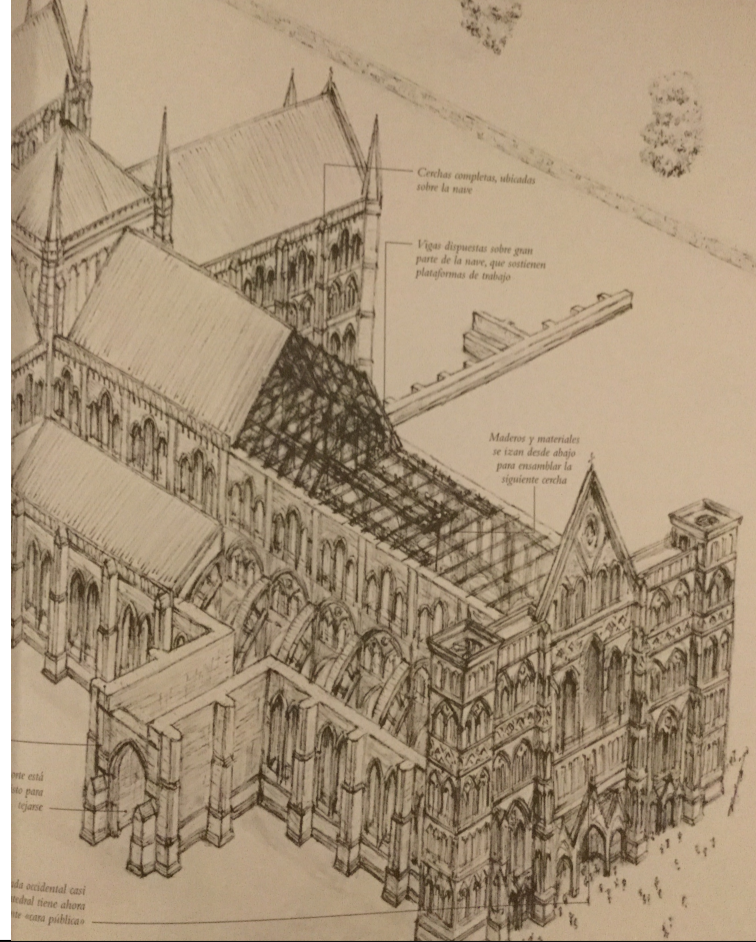 Cerchas completas, ubicadas
sobre la nave
Vigas dispuestas sobre gran
parte de la nave, que sostienen
plataformas de trabajo
Maderos y materiales
se izan desde abajo
para ensamblar la
siguiente cercha
está
para
tejarse
occidental casi
tiene ahora
«cara pública»